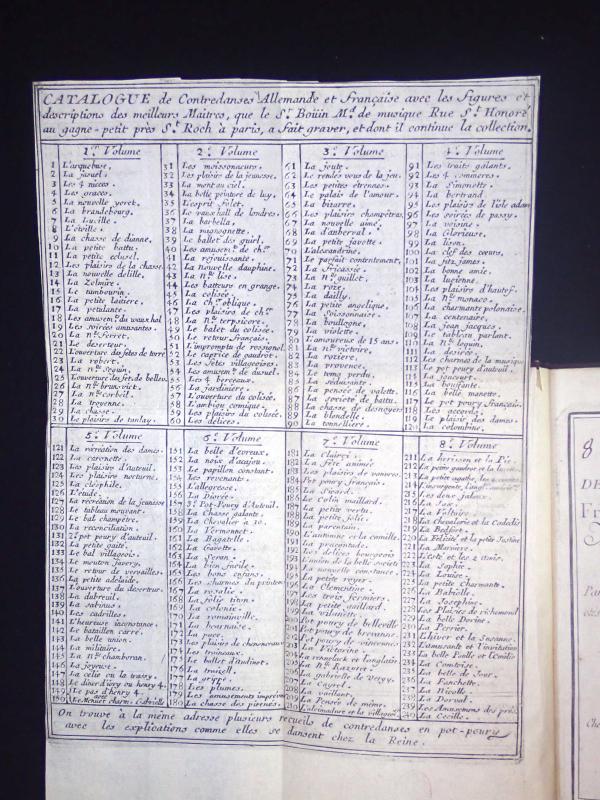 CATALOGUE de Contredanses Allemande et Française avec les figures et
descriptions des meilleurs Maitres, que le Sr. Boüin Md. de musique Rue St. Honoré
au gagne-petit près St. Roch à paris, a fait graver, et dont il continue la collection.
1.r Volume
1 L'arquebuse.
2 La jasuel.
3 Les 4 nieces.
4 Les graces.
5 La nouvelle yoret.
6 La brandebourg.
7 La Lucille.
8 L'étoille.
9 La chasse de dianne.
10 La petite battu.
11 La petite
12 Les plaisirs de la chasse.
13 La nouvelle delille.
14 La Zelmire.
15 Le tambourin.
16 La petite laitiere.
17 La petulante.
18 Les amusemt. du wauxhal
19 Les soirées amusantes.
20 La Nlle. ferret.
21 Le deserteur.
22 L'ouverture des fetes de
23 La robert.
24 La Nlle. Seguin.
25 L'ouverture des fet. de
26 La Nlle. brunswict.
27 La Nlle. corbeil.
28 La troyenne.
29 La chasse.
30 Le plaisirs de tanlay.
2.e Volume
31 Les moissonneurs.
32 Les plaisirs de la jeunesse.
33 La mont au ciel.
34 La belle peinture de luy.
35 L'esprit folet.
36 Le vauxhall de londres.
37 La barbella.
38 La mignonette.
39 Le ballet des guirl.
40 Les amusemt. de chlle.
41 La réjouissante.
42 La nouvelle dauphine.
43 La Nlle. lise.
44 Les batteurs en grange.
45 La colisée.
46 La chlle. oblique.
47 Les plaisirs de chlle.
48 La Nlle. terpsicore.
49 Le balet du colisée.
50 Le retour français.
51 L'impromptu de rossignol
52 Le caprice de gaudrot.
53 Les fetes villageoises.
54 Les amusemt. de
55 Les 4 berceaux.
56 La jardiniere.
57 L'ouverture du colisée.
58 L'ambigu comique.
59 Les plaisirs du colisée.
60 Les délices.
3.e Volume
61 La joute.
62 Le rendés vous de la jeu.
63 Les petites étrennes.
64 Le palais de l'amour.
65 La bizarre.
66 Les plaisirs champétres.
67 La nouvelle aime.
68 La d'auberval.
69 La petite javotte.
70 L'alexandrine.
71 Le parfait contentement.
72 La fricassée.
73 La Nlle. guillot.
74 La roze.
75 La dailly.
76 La petite angelique.
77 La Soissonnaise.
78 La boullogne.
79 La violette.
80 L'amoureux de 15 ans.
81 La Nlle. victoire.
82 La rosiere.
83 La provence.
84 Le temp perdu.
85 La séduisante.
86 La pensée de valette.
87 La societe de battu.
88 La chasse de desnoyers
89 La blondelle.
90 La tonnelliere.
4.e Volume
91 Les traits galants.
92 Les 4 commeres.
93 La Simonette.
94 La bertrand.
95 Les plaisirs de l'isle adam
96 Les soirées de passy.
97 La voisine.
98 La Glorieuse.
99 La lison.
100 La clef des cœurs.
101 La fitz james.
102 La bonne amie.
103 La lucienne.
104 Les plaisirs d'hautef.
105 La Nlle. monaco.
106 La charmante polonaise.
107 La centenaire.
108 La jean jacques.
109 Le tableau parlant.
110 La Nlle.
111 La desirée.
112 Les charmes de la musique
113 Le pot poury d'auteuil.
114 La jaucourt.
115 La bouffante.
116 La belle manette.
117 Le pot poury français.
118 Les accords.
119 Le plaisir des dames.
120 La colombine.
5.e Volume
121 La récréation des dames.
122 La caronette.
123 Les plaisirs d'auteuil.
124 Les plaisirs nocturne.
125 La cléophile.
126 L'étude.
127 La récréation de la jeunesse
128 Le tableau mouvant.
129 Le bal champetre.
130 La reconciliation.
131 2e. pot poury d'auteuil.
132 La petite gaité.
133 Le bal villageois.
134 Le mouton favory.
135 Le retour de versailles.
136 La petite adelaide.
137 L'ouverture du deserteur.
138 La dubreuil.
139 La sabinus.
140 Les cadrilles.
141 L'heureuse inconstance.
142 Le bataillon carré.
143 La belle union.
144 La militaire.
145 La Nlle. chamboran.
146 La joyeuse.
147 La célie ou la traisy.
148 Le diner d'ivry ou henry 4.
149 Le pas d'henry 4.
150 Le Menuet charm. Gabrielle
6.e Volume
151 La belle d'evreux.
152 La noix d'acajou.
153 Le papillon constant.
154 Les revenants.
155 L'allegresse.
156 La Diorée.
157 3e. Pot-Poury d'Auteuil.
158 La Chasse galante.
159 Le Chevalier à 30.
160 La Vermonnet.
161 La Bagatelle.
162 La Guvette.
163 La Feran.
164 La bien facile.
165 Les bons enfans.
166 Les charmes du printems
167 La rosalie.
168 La jolie tition.
169 La colonie.
170 La romainville.
171 La bournaise.
172 La puce.
173 Les plaisirs de chenonceaux
174 Les traineaux.
175 Le ballet d'audinot.
176 La truxell.
177 La grippé.
178 Les plumes.
179 Les amusements imprévu
180 La chasse des pirenés.
7.e Volume
181 La Clairçi.
182 La Fête animée.
183 Les plaisirs de vanvres.
184 Pot poury français.
185 La Sicard.
186 Le colin maillard.
187 La petite vertu.
188 La petite folie.
189 La parentain.
190 L'antonin et la camille.
191 La précontade.
192 Les délices bourgeois
193 L'union de la belle societé
194 La nouvelle constance.
195 La petite royer.
196 La Clementine.
197 Les trois fermiers.
198 La petite gaillard.
199 La valentin.
200 Pot poury de belleville
201 Pot poury de brevanne.
202 Pot poury de vincenne.
203 La Victorine.
204 La ranelack et l'anglais
205 La Nlle. Lazare.
206 La gabrielle de Vergy.
207 La Cayeu.
208 La Vaillant.
209 La Pensée de même.
210 L'alcimadure et la villageoi
8.e Volume
211 La herisson et la Pie.
212 La petite gaudrot et
213 La petite agathe,
214 L'insurgente,
215 Les deux jaloux.
216 La
217 La Voltaire.
218 La Chevalerie et la
219 La Bedfort
220 La Félicité et la petite Justine
221 La Marviere.
222 L'eté et les 2 amis.
223 La Saphie.
224 La Louise.
225 La petite Charmante.
226 La Babiolle.
227 La Josephine.
228 Les Plaisirs de richemond
229 La belle Dorine.
230 La Persier.
231 L'hiver et la Susanne.
232 L'amusante et l'invitation
233 La belle Paille et l'Emilie
234 La Comtoise.
235 La belle de Jour.
236 La Fanchette.
237 La Nicolle.
238 La Dorval.
239 Les Amusemens des prés.
240 La Cecille.
On trouve à la même adresse plusieurs recueils de contredanses en pot-poury
avec les explications comme elles se dansent chez la Reine.
8
DE
Fr
Pa
Che